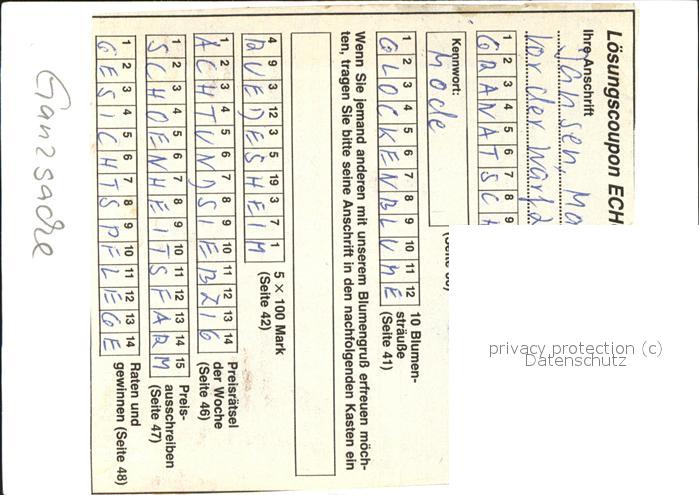 Lösungscoupon ECH
Ihre Anschrift
Vor der
1 2 3 4 5 6 7 8 9
G R A N A T S C
Kennwort:
Mode
1 2 3 4 5 6 7 8 9 10 11 12
G L O C K E N B L U M E
10 Blumen-
sträuße
(Seite 41)
Wenn Sie jemand anderen mit unserem Blumengruß erfreuen möch-
ten, tragen Sie bitte seine Anschrift in den nachfolgenden Kasten ein
4 9 3 12 3 5 19 3 7 1
R U E D E S H E I M
5 × 100 Mark
(Seite 42)
1 2 3 4 5 6 7 8 9 10 11 12 13 14
A C H T U N D S I E B Z I G
Preisrätsel
der Woche
(Seite 46)
1 2 3 4 5 6 7 8 9 10 11 12 13 14 15
S C H O E N H E I T S F A R M
Preis-
ausschreiben
(Seite 47)
1 2 3 4 5 6 7 8 9 10 11 12 13 14
G E S I C H T S P F L E G E
Raten und
gewinnen (Seite 48)
Ganzsache
privacy protection (c)
Datenschutz